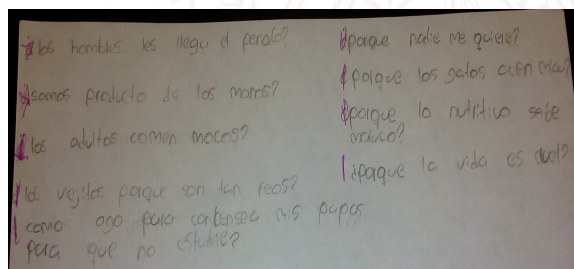 ¿los hombles les llega el peralo?
¿somos producto de los monos?
¿los adultos comen mocos?
¿los vejitos porque son tan feos?
como ago para conbenser a mis papas
para que no estudie?
¿porque nadie me quiere?
¿porque los gatos asen miau?
¿porque lo nutritivo sabe
maluco?
¿porque la vida es cruel?